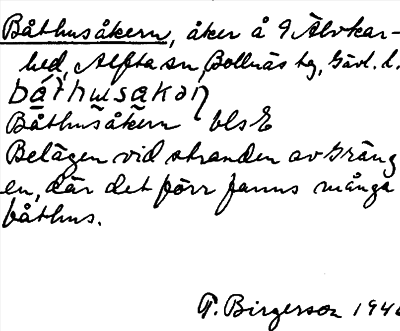 Båthusåkern, åker å 9 Älvkar-
hed, Alfta sn, Bollnäs tg, Gävl. l.
båthusåkən
Båthusåkern bls E
Belägen vid stranden av Gräng
en, där det förr fanns många
båthus.
T. Birgerson 1946